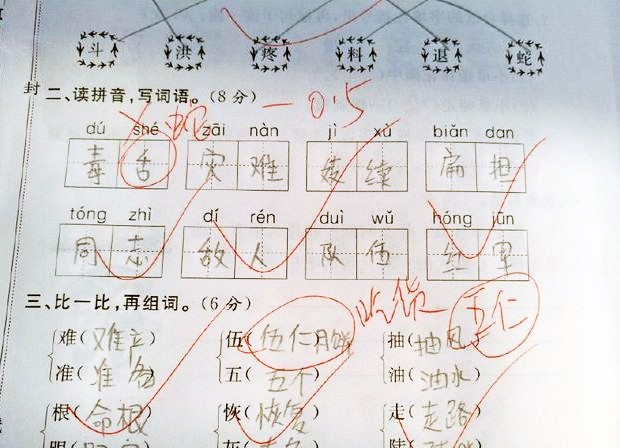 斗 洪 疼 料 退 蛇
封 二、读拼音,写词语。(8分) 一0.5
dú shé zāi nàn jì xù biǎn dan
蛇
毒舌 灾难 续 扁担
tóng zhì dí rén duì wǔ hóng jūn
同志 敌人 队伍 红军
三、比一比,再组词。(6分)
吃货 五仁
难() 伍(伍仁月饼) 抽(抽风)
准(准备) 五(五个) 油(油水)
根(命根) 恢(恢复) 走(走路)